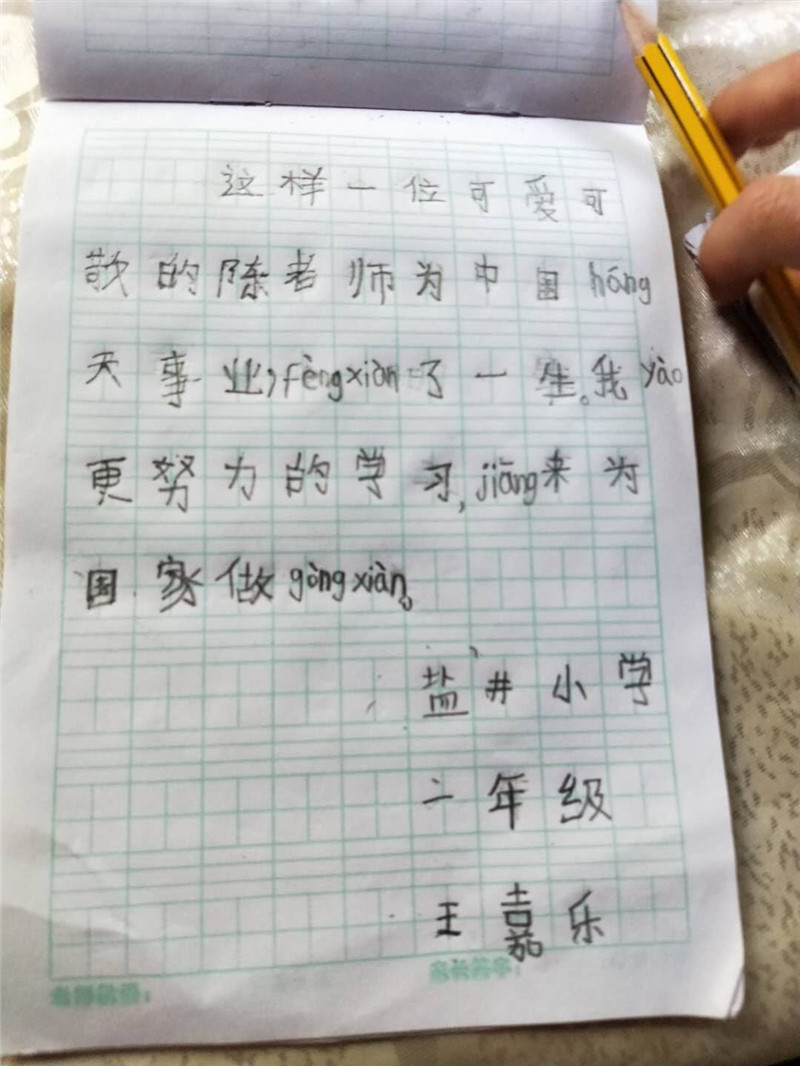 这样一位可爱可
敬的陈老师为中国háng
天事业,fèngxiàn了一生。我yào
更努力的学习,jiāng来为
国家做gòngxiàn。
盐井小学
二年级
王嘉乐